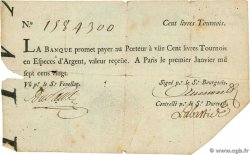 N.° 1584300 Cent livres Tournois.
LA BANQUE promet payer au Porteur à vüe Cent livres Tournois
en Especes d'Argent, valeur reçeüe. A Paris le premier Janvier mil
sept cens vingt.
Vû p.r le S.r Fenellon. Signé p.r le S.r Bourgeois.
Controllé p.r le S.r Durevest.